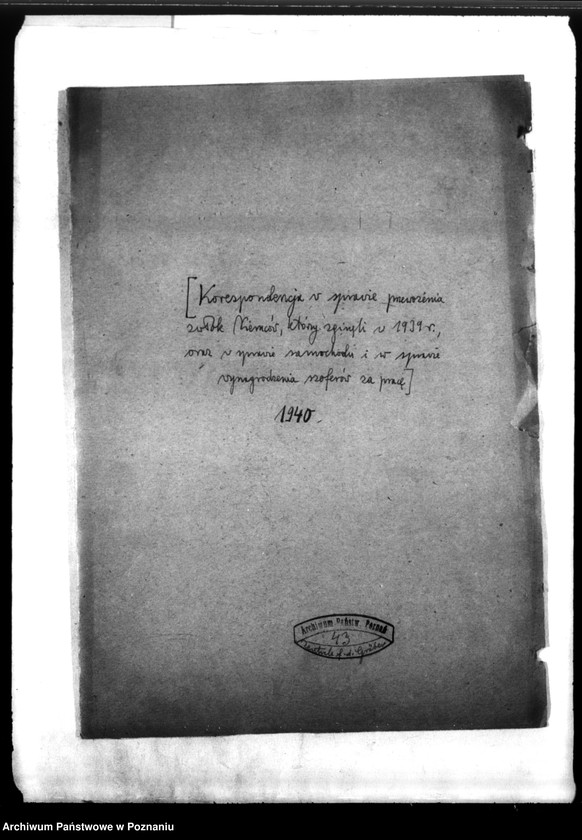 [Korespondencja w sprawie przewożenia
zwłok Niemców, którzy zginęli w 1939 r.,
oraz w sprawie samochodu i w sprawie
wynagrodzenia szoferów za pracę]
1940.
Archiwum Państw. Poznań
43
Archiwum Państwowe w Poznaniu